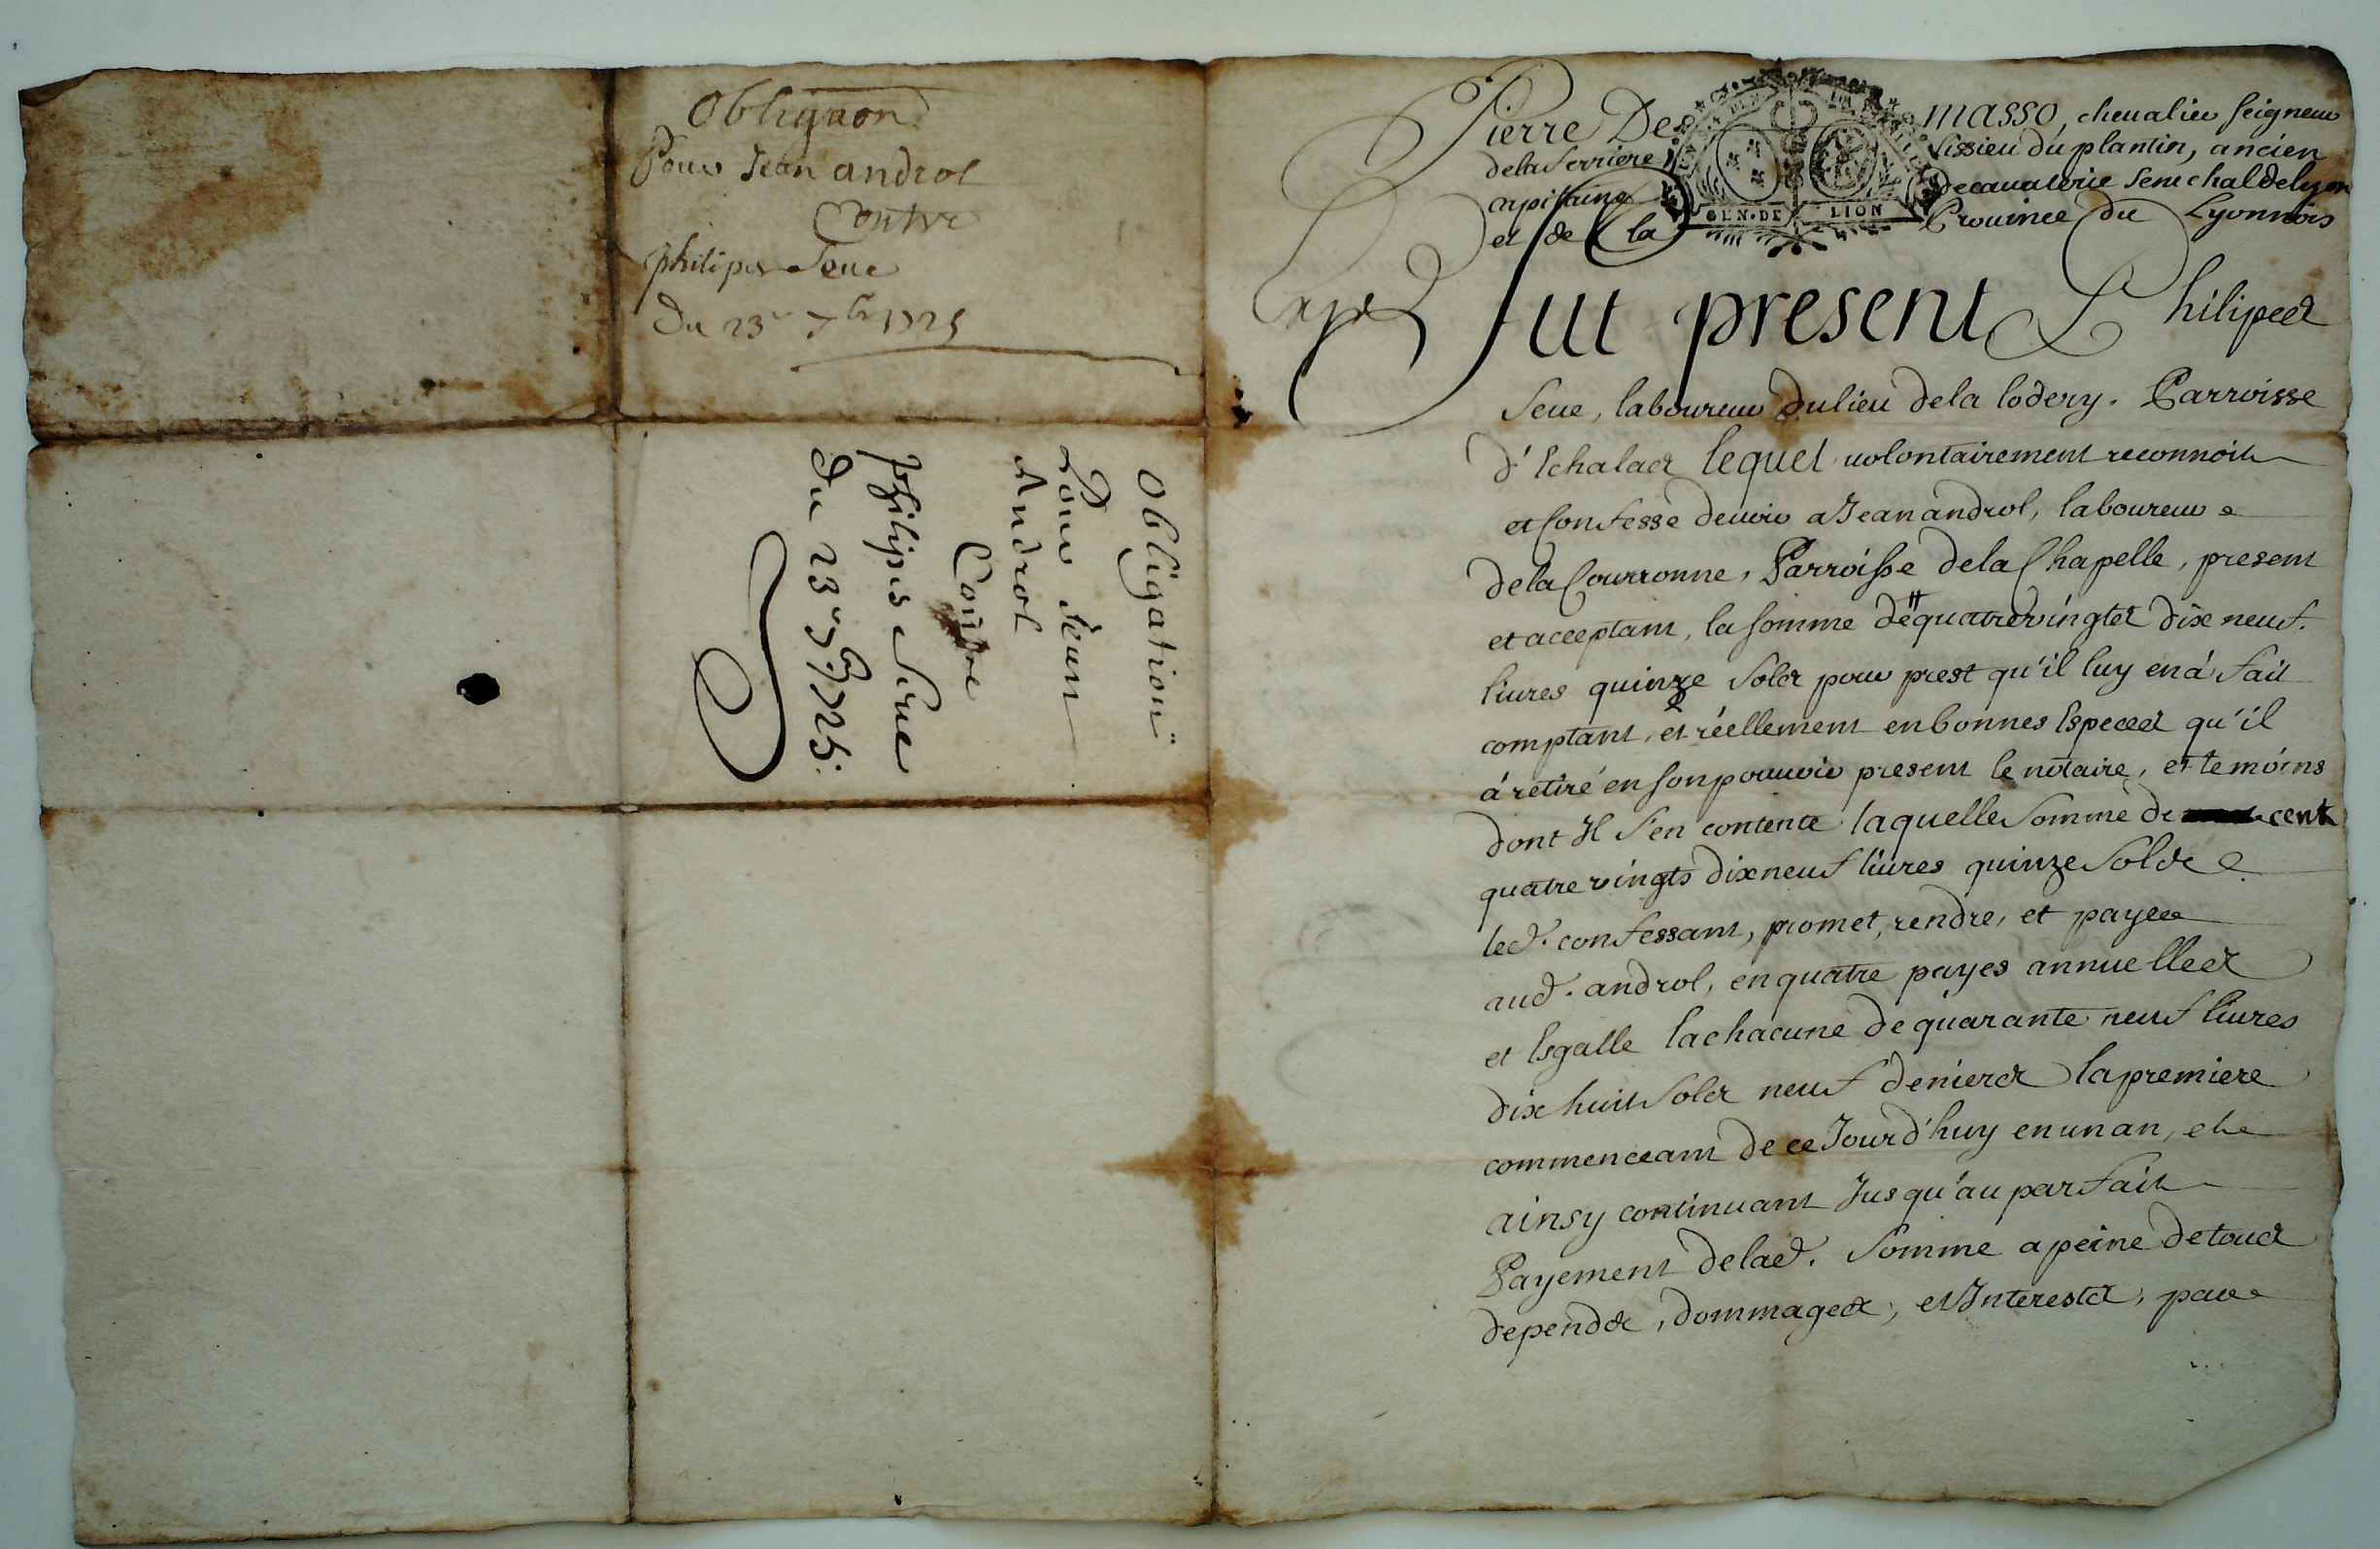 Obligaon
Pour Jean androl
Contre
philipes Seue
Du 23e 7bre 1725
Obligation
Pour Jean
Androl
Contre
philipes Seue
Du 23e 7bre 1725.
Pierre Des masso, cheualier seigneur
de la ferriere lissieu du plantin, ancien
capitaine de caualerie senechal de lyon
et de la Prouince du Lyonnois
GEN. DE LION
Fut present Philipes
Seue, laboureur du lieu de la lodery. Parroisse
d'Echalas lequel uolontairement reconnoit
et Confesse deuoir a Jean androl, laboureur
de la Courronne, Parroisse de la Chapelle, present
et acceptant, la somme de quatre vingtes dix neuf.
liures quinze Sols pour prest qu'il luy en à fait
comptant, et réellement en bonnes Especes qu'il
à retiré en son pouuoir present le notaire, et temoins
dont Il S'en contente laquelle Somme de cent
quatre vingts dix neuf liures quinze Sols
led. confessant, promet, rendre, et payer
aud. androl, en quatre payes annuelles
et Esgalle la chacune de quarante neuf liures
dix huit Sols neuf deniers la premiere
commenceant de ce Jourd'huy en un an, et
ainsy continuant Jusqu'au parfait
Payement de lad. Somme a peine de tous
depends, dommages, et Interests, par